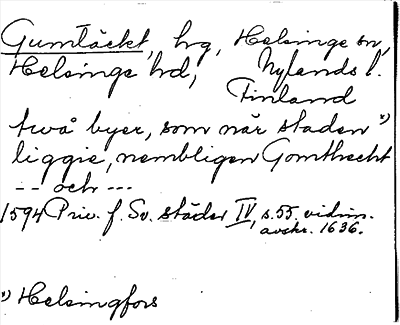 Gumtäckt, hg, Helsinge sn,
Helsinge hd, Nylands l.
Finland
två byer, som när staden *)
liggie, nembligen Gomthecht
-- och ---
1594 Priv. f. Sv. städer IV, s. 55. vidim.
avskr. 1636.
*) Helsingfors